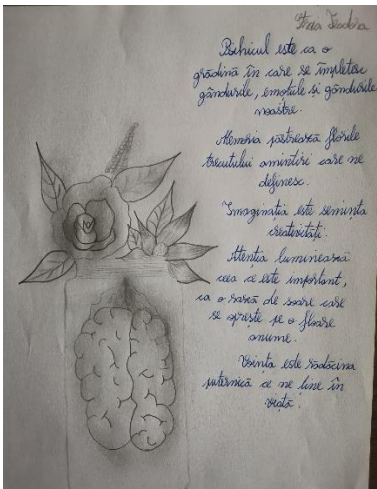 Teodora
Psihicul este ca o
grădină în care se împletesc
gândurile, emoțiile și gândurile
noastre.
Memoria păstrează florile
trecutului amintiri care ne
definesc.
Imaginația este semința
creativității.
Atenția luminează
ceea ce este important,
ca o rază de soare care
se oprește pe o floare
anume.
Voința este rădăcina
puternică ce ne ține în
viață.